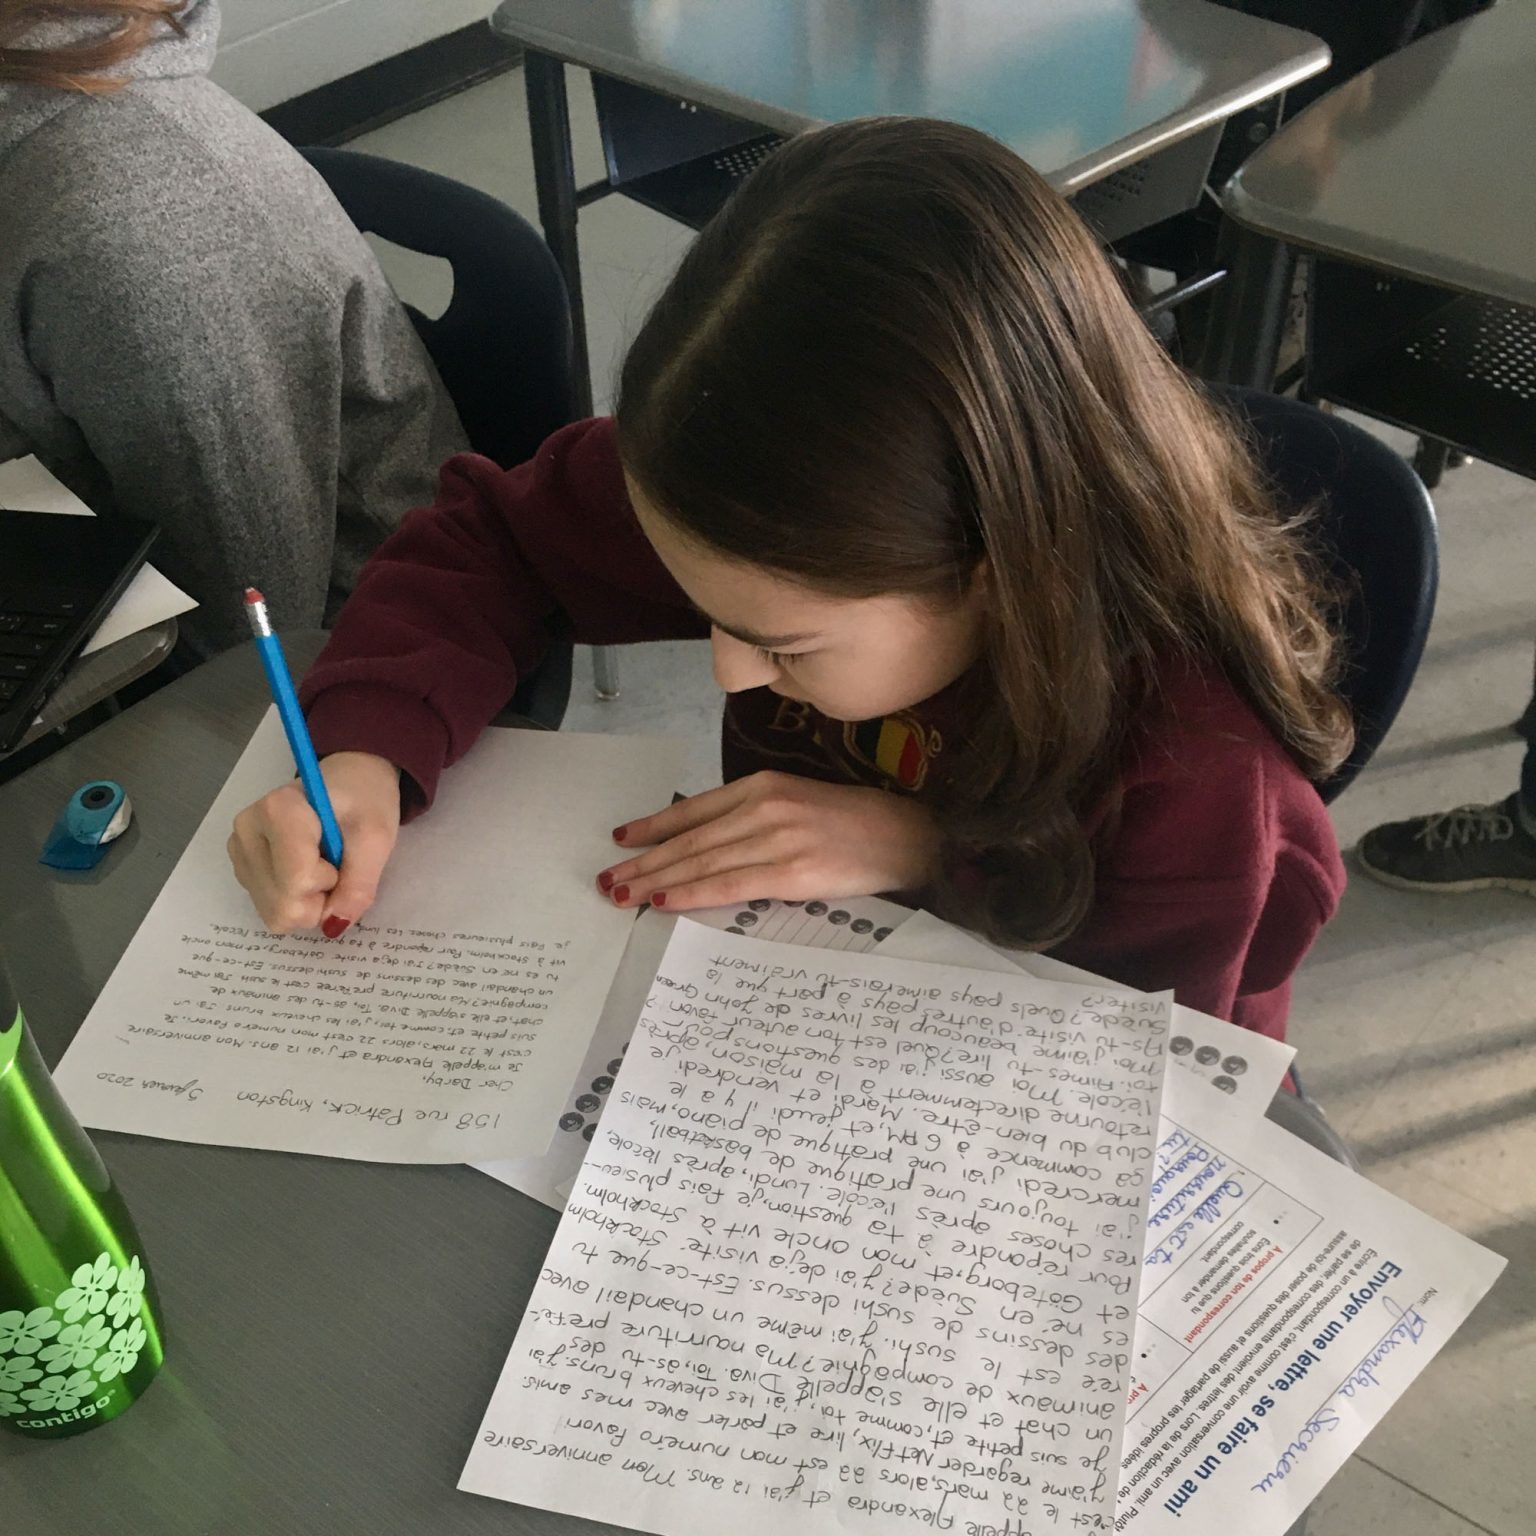 158 rue Patrick, Kingston
2020
Cher Darby,
Je m'appelle Alexandra et j'ai 12 ans. Mon anniversaire
c'est le 22 mars, alors 22 c'est mon numero favori. Je
suis petite et, comme toi, j'ai les cheveux bruns. J'ai un
chat, et elle s'appelle Diva. Toi, as-tu des animaux de
compagnie? Ma nourriture préférée c'est le sushi. J'ai même
un chandail avec des dessins de sushi dessus. Est-ce-que
tu es né en Suède? J'ai deja visité Göteborg, et mon oncle
vit à Stockholm. Pour répondre à ta question, après l'école,
je fais plusieures choses. Les lundi
appelle Alexandra et j'ai 12 ans. Mon anniversaire
c'est le 22 mars, alors 22 est mon numero favori
J'aime regarder Netflix, lire et parler avec mes amis.
Je suis petite et, comme toi, j'ai les cheveux bruns. J'ai
un chat et elle s'appelle Diva. Toi, as-tu des
animaux de compaghie? Ma nourriture préfé-
rée est le sushi. J'ai même un chandail avec
des dessins de sushi dessus. Est-ce-que tu
es né en Suède? J'ai deja visité Stockholm
et Göteborg, et mon oncle vit à Stockholm.
Pour répondre à ta question, je fais plusieu-
res choses après l'école. Lundi, après l'école,
j'ai toujours une pratique de basketball,
mercredi j'ai une pratique de piano, mais
ça commence à 6 PM, et jeudi il y a le
club du bien-être. Mardi et vendredi je
retourne directemment à la maison, après
l'école. Moi aussi j'ai des questions pour
toi. Aimes-tu lire? Quel est ton auteur favori?
Moi, j'aime beaucoup les livres de John Green
As-tu visité d'autres pays à part que la
Suède? Quels pays aimerais-tu vraiment
visiter?
Nom:
Alexandra Secrieru
Envoyer une lettre, se faire un ami
Écrire à un correspondant, c'est comme avoir une conversation avec un ami. Plutôt
de se parler, des correspondants envoient des lettres. Lors de la rédaction de
assure-toi de poser des questions et aussi de partager tes propres idées
À propos de ton correspondant
Écris trois questions que tu
souhaites demander à ton
correspondant.
À pro
Quelle est ta
nourriture
Pourquoi
contigo